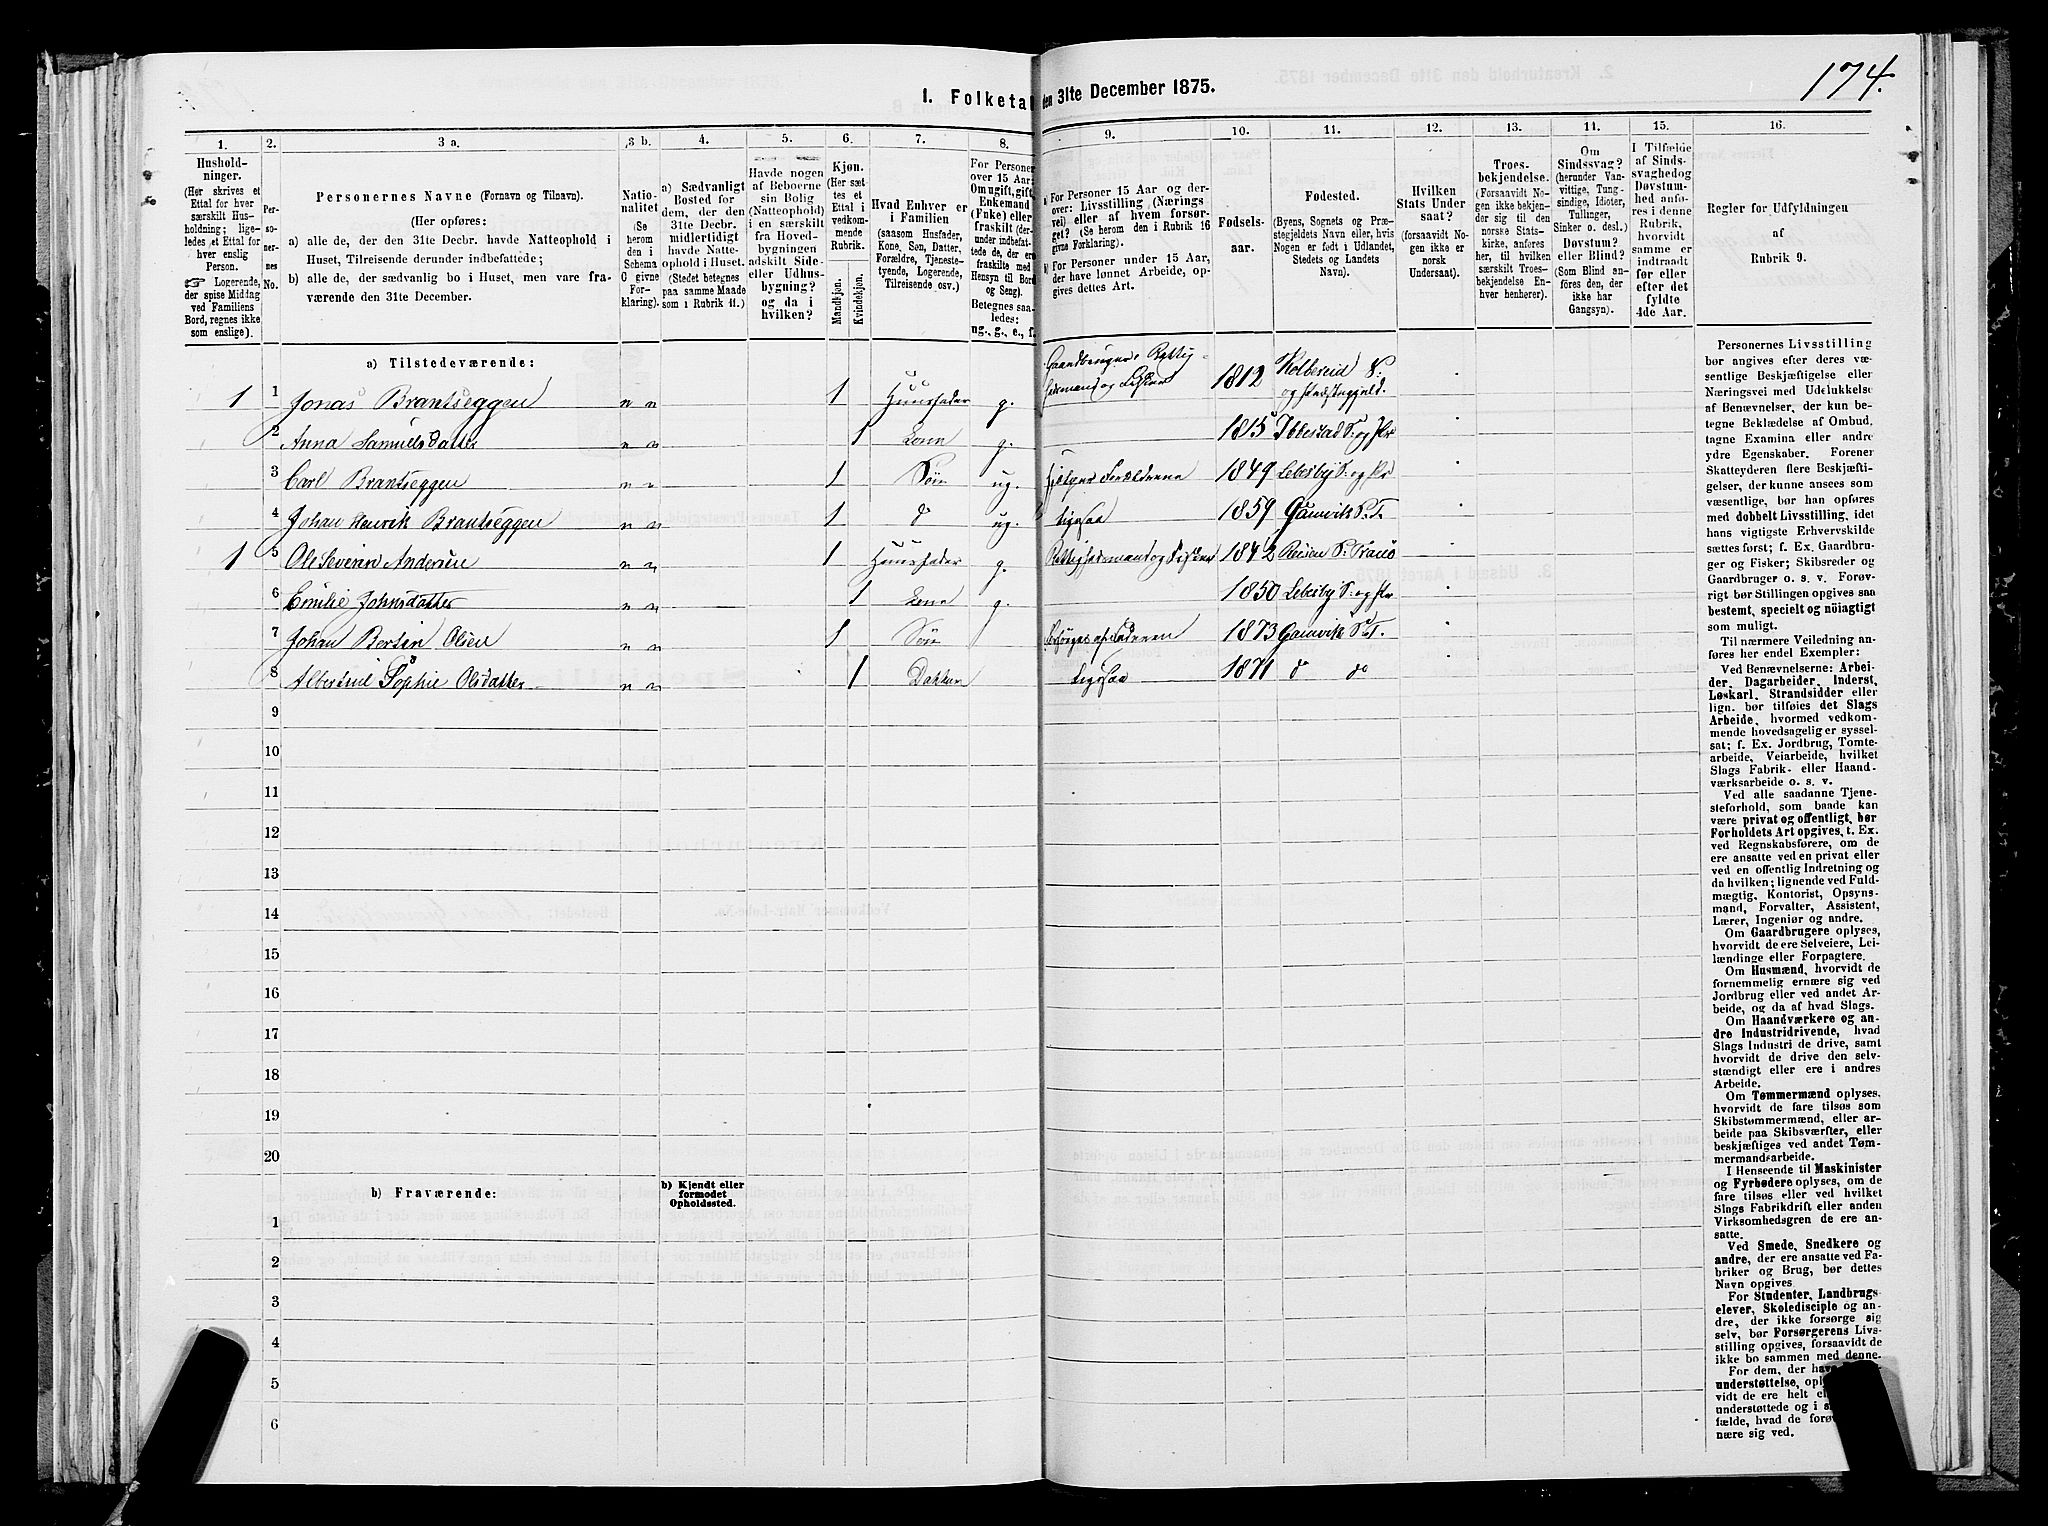 174.
1. Folketal den 31te December 1875.
1. 2. 3 a. 3 b. 4. 5. 6. 7. 8. 9. 10. 11. 12. 13. 14. 15. 16.
Husholdninger. (Her skrives et Ettal for hver særskilt Husholdning; ligeledes et Ettal for hver enslig Person. Logerende, der spise Middag ved Familiens Bord, regnes ikke som enslige).
Personernes No.
Personernes Navne (Fornavn og Tilnavn).
(Her opføres:
a) alle de, der den 31te Decbr. havde Natteophold i Huset, Tilreisende derunder indbefattede;
b) alle de, der sædvanlig bo i Huset, men vare fraværende den 31te December.
Nationalitet (Se herom den i Schema O givne Forklaring).
a) Sædvanligt Bosted for dem, der den 31te Decbr. midlertidigt havde Natteophold i Huset. (Stedet betegnes paa samme Maade som i Rubrik 11.)
Havde nogen af Beboerne sin Bolig (Natteophold) i en særskilt fra Hovedbygningen adskilt Side- eller Udhusbygning? og da i hvilken?
Kjøn. (Her sættes et Ettal i vedkommende Rubrik.
Mandkjøn. Kvindekjøn.
Hvad Enhver er i Familien (saasom Husfader, Kone, Søn, Datter, Forældre, Tjenestetyende, Logerende, Tilreisende osv.)
For Personer over 15 Aar: Om ugift, gift, Enkemand (Enke) eller fraskilt (derunder indbefattede de, der ere fraskilte med Hensyn til Bord og Seng). Betegnes saaledes: ug., g., e., f.
a) For Personer 15 Aar og derover: Livsstilling (Næringsvei) eller af hvem forsørget? (Se herom den i Rubrik 16 givne Forklaring).
b) For Personer under 15 Aar, der have lønnet Arbeide, opgives dettes Art.
Fødselsaar.
Fødested. (Byens, Sognets og Præstegjeldets Navn eller, hvis Nogen er født i Udlandet, Stedets og Landets Navn).
Hvilken Stats Undersaat? (forsaavidt Nogen ikke er norsk Undersaat).
Troesbekjendelse. (Forsaavidt Nogen ikke bekjender sig til den norske Statskirke, anføres her, til hvilken særskilt Troesbekjendelse Enhver henhører).
Om Sindssvag? (herunder Vanvittige, Tungsindige, Idioter, Tullinger, Sinker o. desl.) Døvstum? eller Blind? (Som Blind anføres den, der ikke har Gangsyn).
I Tilfælde af Sindssvaghed og Døvstumhed anføres i denne Rubrik, hvorvidt samme er indtraadt før eller efter det fyldte 4de Aar.
Regler for Udfyldningen af Rubrik 9.
a) Tilstedeværende:
1 1 Jonas Brantseggen n n 1 Huusfader g. 1812
2 Anna Samuelsdatter n n 1 Kona g. 1815 Ibbestad S: og Pr
3 Carl Brantseggen n n 1 Søn ug. hjelper Forældrene 1849 Lebesby S: og Pr
4 Johan Henrik Brantseggen n n 1 do ug. ligesaa 1859 Gamvik S. T.
1 5 Ole Severin Andersen n n 1 Huusfader g. 1842
6 Emilie Johnsdatter n n 1 Kona g. 1850 Lebesby S: og Pr
7 Johan Bertin Olsen n n 1 Søn forsørges af Faderen 1873 Gamvik S. T.
8 Sophie Olsdatter n n 1 Datter ligesaa 1871 do do
9
10
11
12
13
14
15
16
17
18
19
20
b) Fraværende:
b) Kjendt eller formodet Opholdssted.
1
2
3
4
5
6
Personernes Livsstilling
bør angives efter deres væ-
sentlige Beskjæftigelse eller
Næringsvei med Udelukkelse
af Benævnelser, der kun be-
tegne Beklædelse af Ombud,
tagne Examina eller andre
ydre Egenskaber. Forener
Skatteyderen flere Beskjæfti-
gelser, der kunne ansees som
væsentlige, bør han opføres
med dobbelt Livsstilling, idet
hans vigtigste Erhvervskilde
sættes først; f. Ex. Gaardbru-
ger og Fisker; Skibsreder og
Gaardbruger o. s. v. Forøv-
rigt bør Stillingen opgives saa
bestemt, specielt og nöiagtigt
som muligt.
Til nærmere Veiledning an-
føres her endel Exempler:
Ved Benævnelserne: Arbei-
der, Dagarbeider, Inderst,
Løskarl, Strandsidder eller
lign. bør tilføies det Slags
Arbeide, hvormed vedkom-
mende hovedsagelig er syssel-
sat; f. Ex. Jordbrug, Tomte-
arbeide, Veiarbeide, hvilket
Slags Fabrik- eller Haand-
værksarbeide o. s. v.
Ved alle saadanne Tjene-
steforhold, som baade kan
være privat og offentligt, bør
Forholdets Art opgives, t. Ex.
ved Regnskabsførere, om de
ere ansatte ved en privat eller
ved en offentlig Indretning og
da hvilken; lignende ved Fuld-
mægtig, Kontorist, Opsyns-
mand, Forvalter, Assistent,
Lærer, Ingeniør og andre.
Om Gaardbrugere oplyses,
hvorvidt de ere Selveiere, Lei-
lændinge eller Forpagtere.
Om Husmænd, hvorvidt de
fornemmelig ernære sig ved
Jordbrug eller ved andet Ar-
beide, og da af hvad Slags.
Om Haandværkere og an-
dre Industridrivende, hvad
Slags Industri de drive, samt
hvorvidt de drive den selv-
stændigt eller ere i andres
Arbeide.
Om Tømmermænd oplyses,
hvorvidt de fare tilsøs som
Skibstømmermænd, eller ar-
beide paa Skibsværfter, eller
beskjæftiges ved andet Tøm-
mermandsarbeide.
I Henseende til Maskinister
og Fyrbødere oplyses, om de
fare tilsøs eller ved hvilket
Slags Fabrikdrift eller anden
Virksomhedsgren de ere an-
satte.
Ved Smede, Snedkere og
andre, der ere ansatte ved Fa-
briker og Brug, bør dettes
Navn opgives.
For Studenter, Landbrugs-
elever, Skoledisciple og an-
dre, der ikke forsørge sig
selv, bør Forsørgerens Livs-
stilling opgives, forsaavidt de
ikke bo sammen med denne.
For dem, der have
understøttelse,
vidt de ere helt
understøttede og i
fælde, hvad de
nære sig ved.